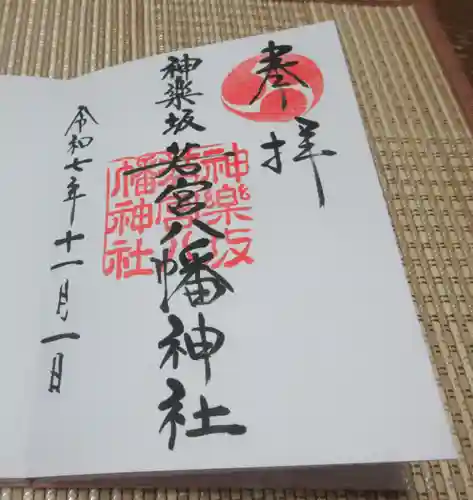 奉拝
神楽坂若宮八幡神社
令和七年十一月一日
神楽坂
若宮八
幡神社